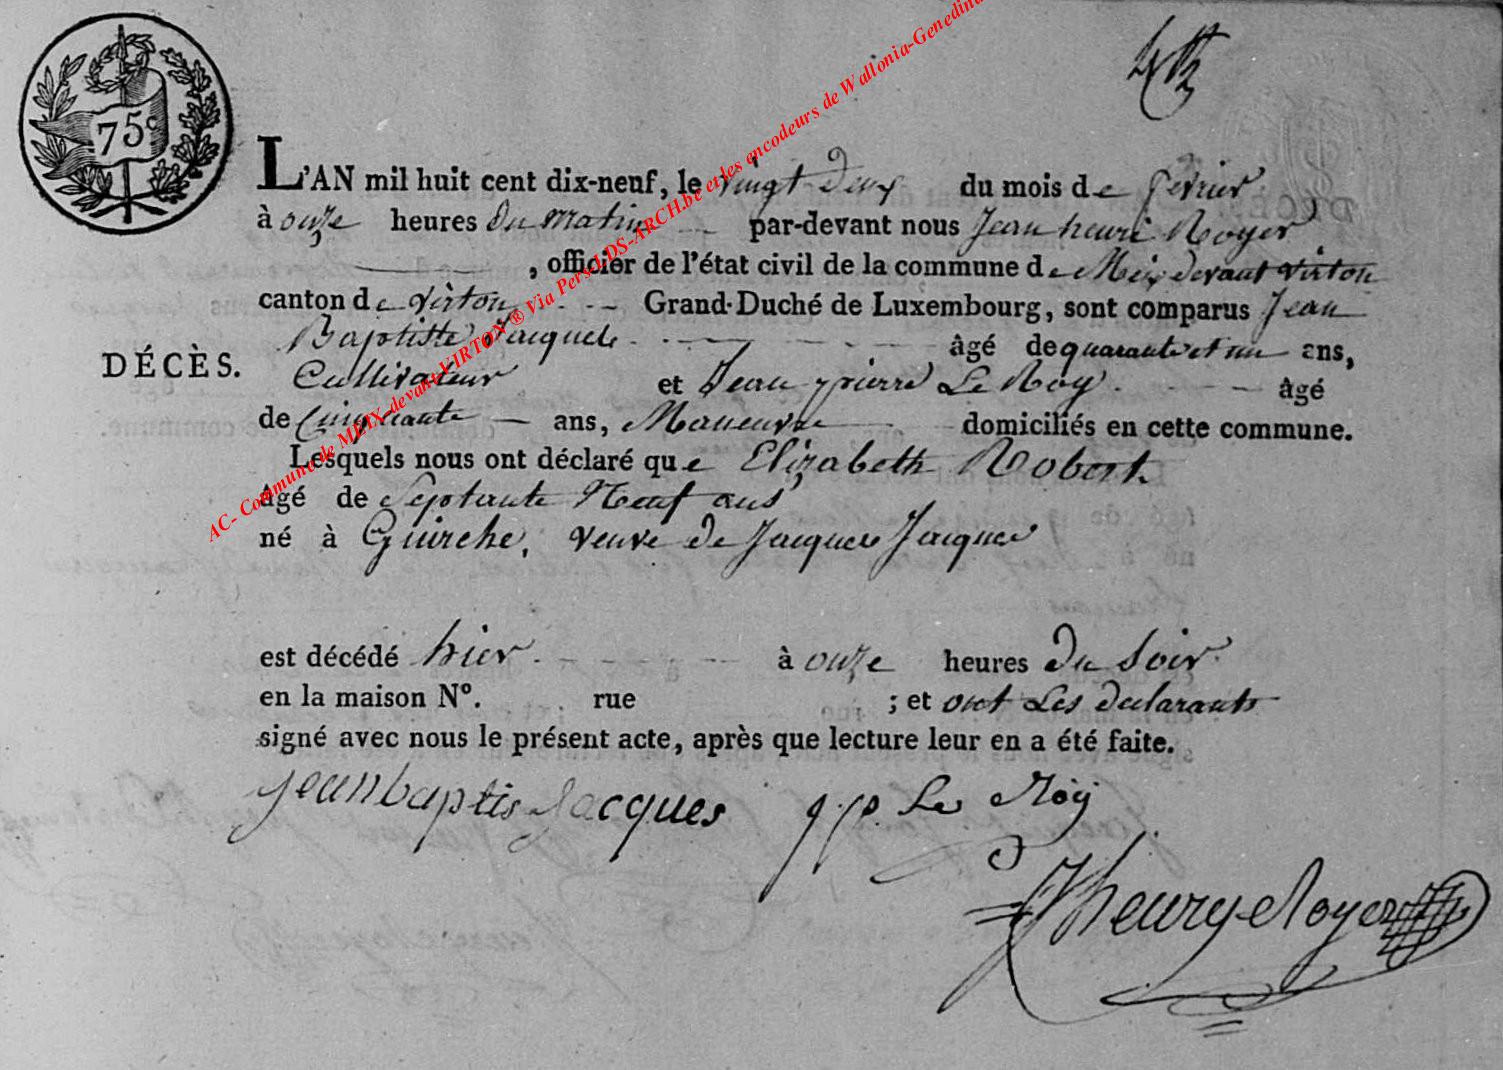 75c
L'AN mil huit cent dix-neuf, le vingt deux du mois de fevrier
à onze heures du matin par-devant nous Jean henri Royer
, officier de l'état civil de la commune de Meix devant virton
canton de virton Grand-Duché de Luxembourg, sont comparus Jean
Baptiste Jacques âgé de quarante et un ans,
DÉCÈS.
Cultivateur et Jean pierre Le Roy âgé
de Cinquante ans, Maneuvre domiciliés en cette commune.
Lesquels nous ont déclaré que Elizabeth Robert
âgé de Septante Neuf ans
né à Guirche, veuve de Jacques Jacques
est décédé hier à onze heures du Soir
en la maison N°. rue ; et ont Les declarants
signé avec nous le présent acte, après que lecture leur en a été faite.
jeanbaptis Jacques j p. Le Roy
J henry Royer
AC- Commune de MEIX-devant-VIRTON ® Via Pers-LDS-ARCH.be et les encodeurs de Wallonia-Genedina